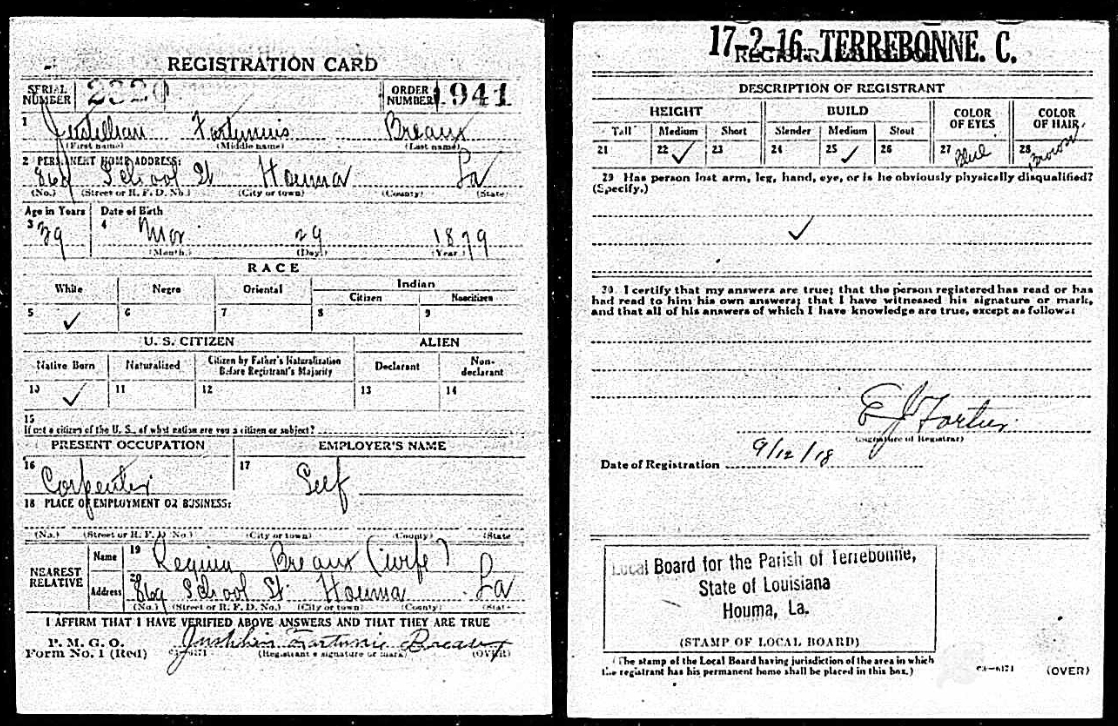 REGISTRATION CARD
SERIAL NUMBER 2320 ORDER NUMBER 1941
1 Justillian Fortunius Breaux
(First name) (Middle name) (Last name)
2 PERMANENT HOME ADDRESS:
869 School St Houma La
(No.) (Street or R. F. D. No.) (City or town) (County) (State)
Age in Years Date of Birth
3 39 4 Mar 29 1879
(Month.) (Day.) (Year.)
RACE
White Negro Oriental Indian
Citizen Noncitizen
5 ✓ 6 7 8 9
U. S. CITIZEN ALIEN
Native Born Naturalized Citizen by Father's Naturalization Before Registrant's Majority Declarant Non-declarant
10 ✓ 11 12 13 14
15
If not a citizen of the U. S., of what nation are you a citizen or subject?
PRESENT OCCUPATION EMPLOYER'S NAME
16 Carpenter 17 Self
18 PLACE OF EMPLOYMENT OR BUSINESS:
(No.) (Street or R. F. D. No.) (City or town) (County) (State
NEAREST RELATIVE
Name 19 Regina Breaux (wife)
Address 20 869 School St. Houma La
(No.) (Street or R. F. D. No.) (City or town) (County) (State
I AFFIRM THAT I HAVE VERIFIED ABOVE ANSWERS AND THAT THEY ARE TRUE
P. M. G. O.
Form No. 1 (Red) 03—6171 (Registrant's signature or mark) (OVER)
17-2-16. TERREBONNE. C.
DESCRIPTION OF REGISTRANT
HEIGHT BUILD COLOR OF EYES COLOR OF HAIR
Tall Medium Short Slender Medium Stout
21 22 ✓ 23 24 25 ✓ 26 27 Blue 28 Brown
29 Has person lost arm, leg, hand, eye, or is he obviously physically disqualified?
(Specify.)
✓
30 I certify that my answers are true; that the person registered has read or has
had read to him his own answers; that I have witnessed his signature or mark,
and that all of his answers of which I have knowledge are true, except as follows:
E J Fortier
(Signature of Registrar)
Date of Registration 9/12/18
Local Board for the Parish of Terrebonne,
State of Louisiana
Houma, La.
(STAMP OF LOCAL BOARD)
(The stamp of the Local Board having jurisdiction of the area in which
the registrant has his permanent home shall be placed in this box.)
03—6171 (OVER)